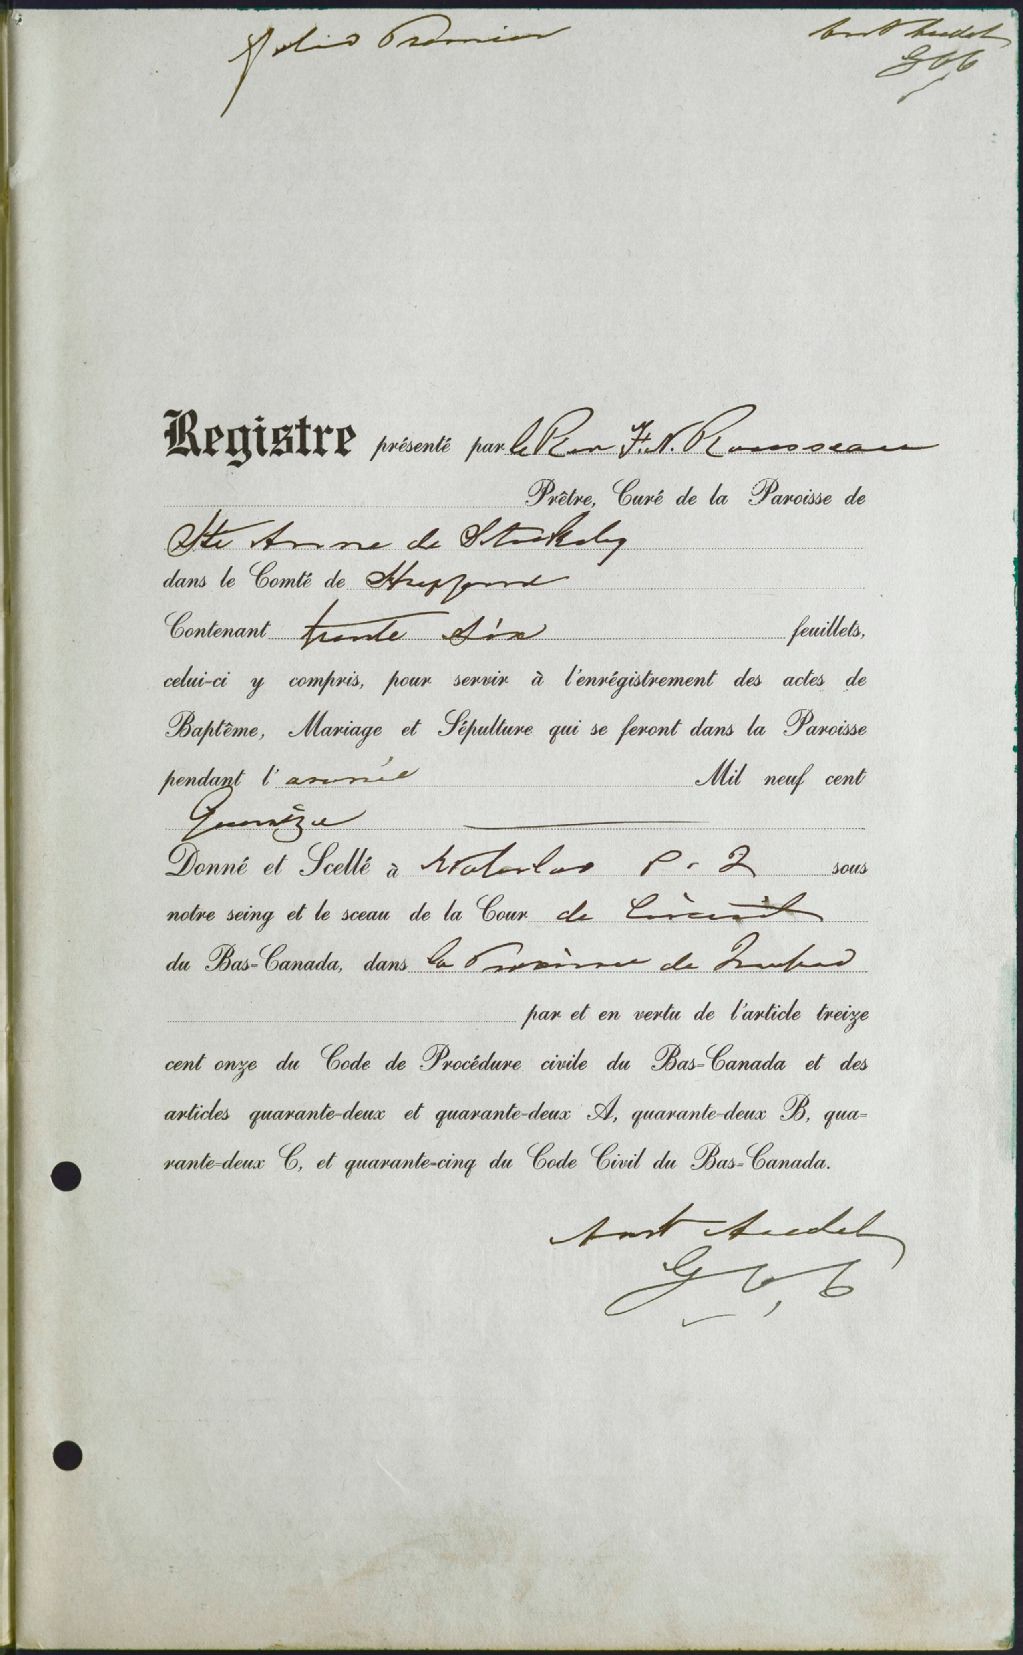 folio Premier
Audet
G C C
Registre présenté par le Rev F. N. Rousseau
Prêtre, Curé de la Paroisse de
Ste Anne de Stukely
dans le Comté de Shefford
Contenant trente Six feuillets,
celui-ci y compris, pour servir à l'enrégistrement des actes de
Baptême, Mariage et Sépulture qui se feront dans la Paroisse
pendant l'année Mil neuf cent
Quinze
Donné et Scellé à Waterloo P. Q sous
notre seing et le sceau de la Cour de Circuit
du Bas-Canada, dans la Province de Quebec
par et en vertu de l'article treize
cent onze du Code de Procédure civile du Bas-Canada et des
articles quarante-deux et quarante-deux A, quarante-deux B, qua-
rante-deux C, et quarante-cinq du Code Civil du Bas-Canada.
Audet
G C, C